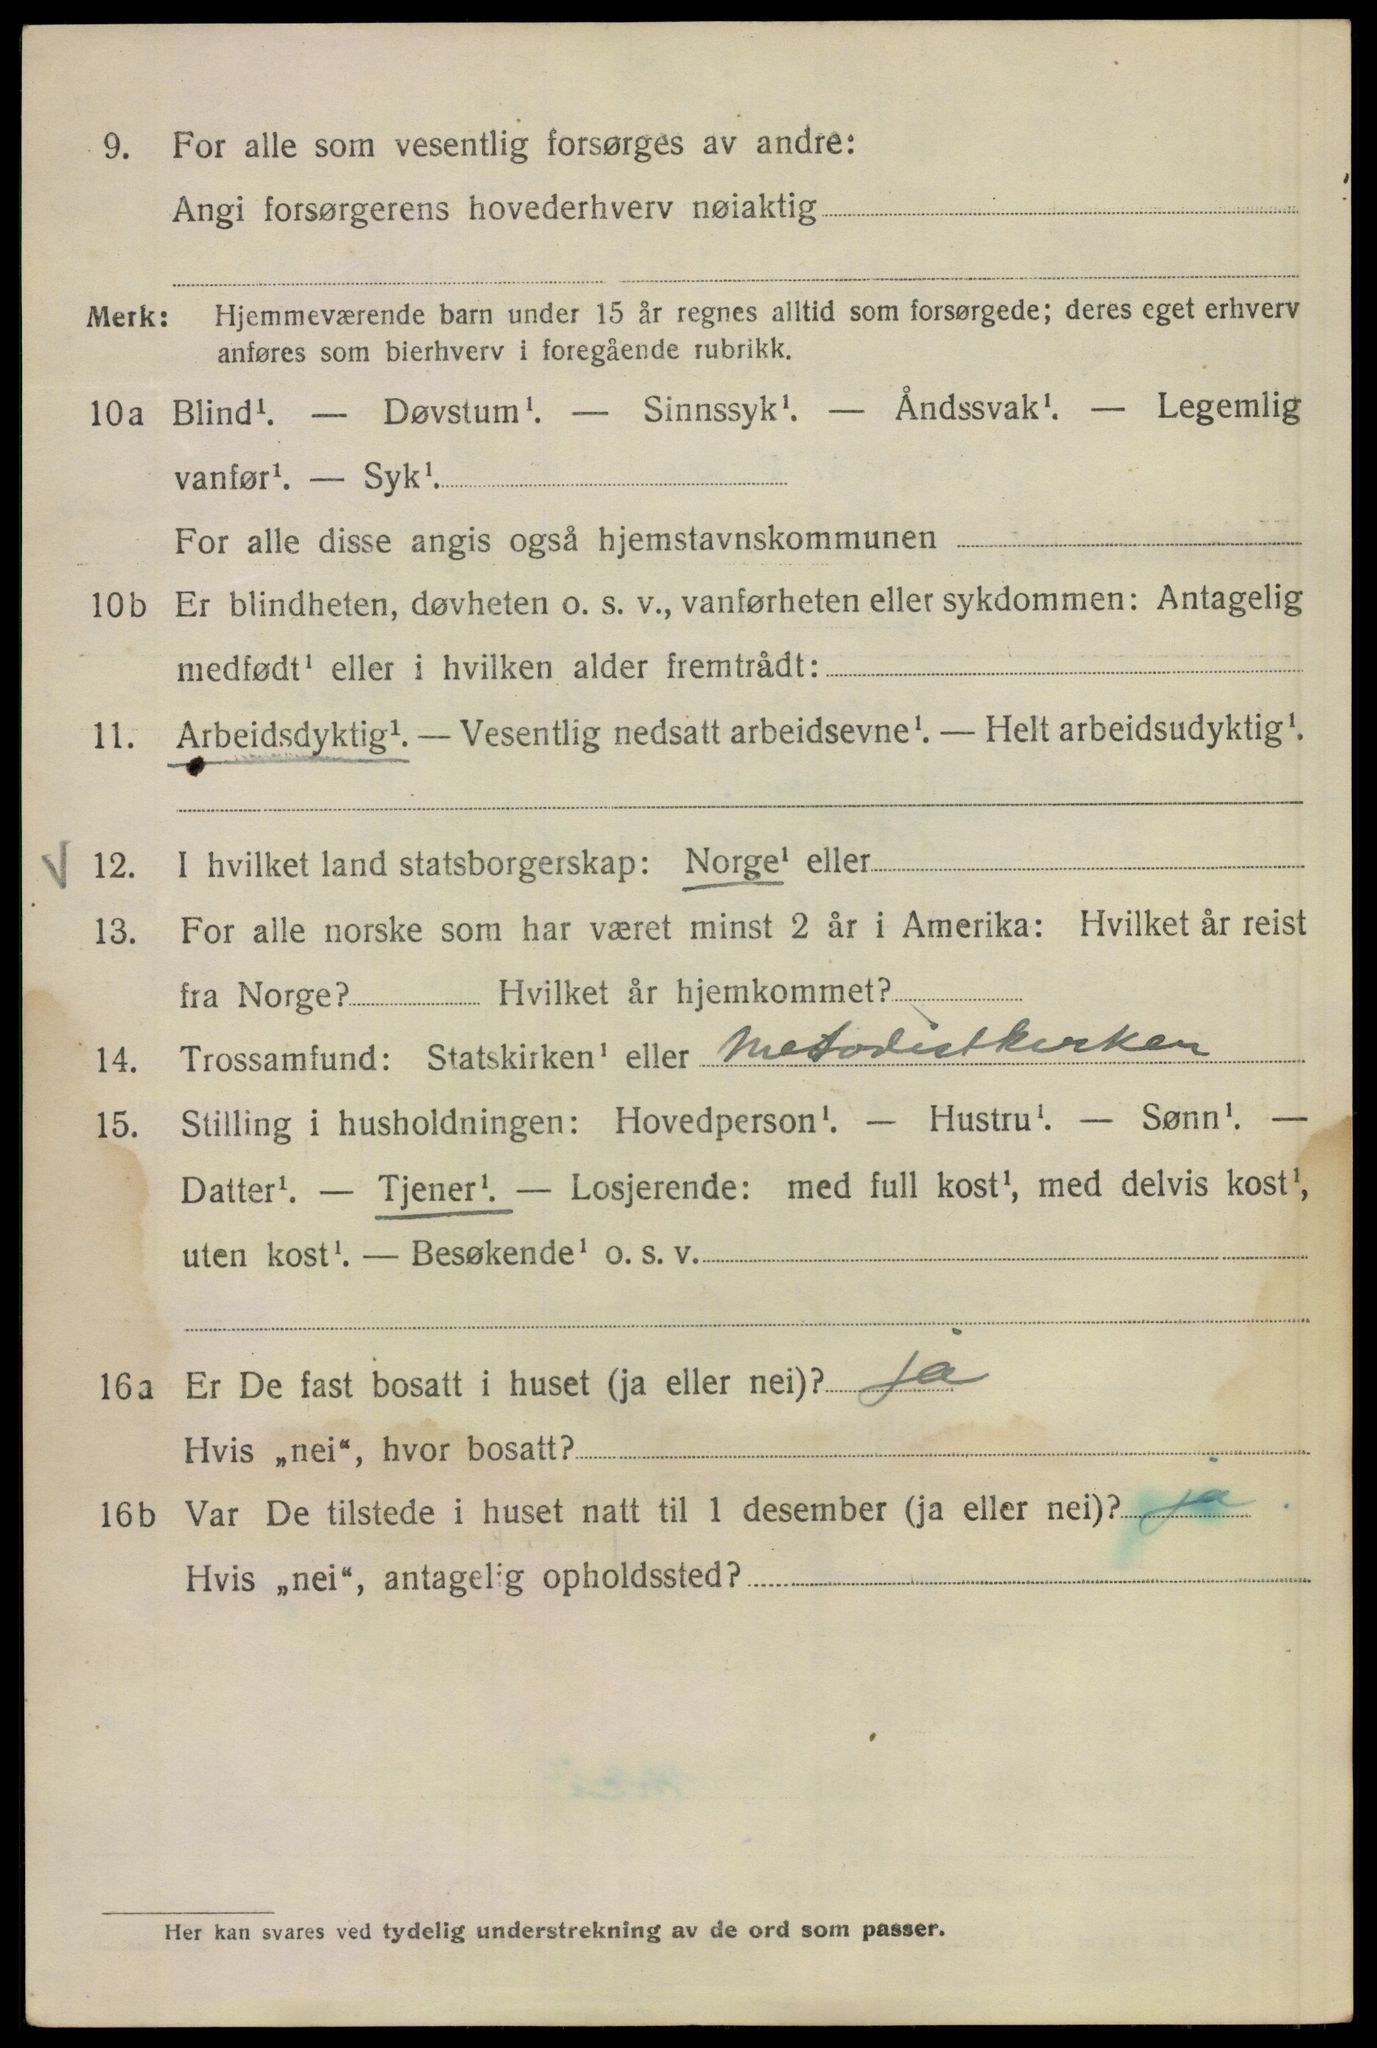 9. For alle som vesentlig forsørges av andre:
Angi forsørgerens hovederhverv nøiaktig
Merk: Hjemmeværende barn under 15 år regnes alltid som forsørgede; deres eget erhverv
anføres som bierhverv i foregående rubrikk.
10a Blind¹. — Døvstum¹. — Sinnssyk¹. — Åndssvak¹. — Legemlig
vanfør¹. — Syk¹.
For alle disse angis også hjemstavnskommunen
10b Er blindheten, døvheten o. s. v., vanførheten eller sykdommen: Antagelig
medfødt¹ eller i hvilken alder fremtrådt:
11. Arbeidsdyktig¹. — Vesentlig nedsatt arbeidsevne¹. — Helt arbeidsudyktig¹.
V 12. I hvilket land statsborgerskap: Norge¹ eller
13. For alle norske som har været minst 2 år i Amerika: Hvilket år reist
fra Norge? Hvilket år hjemkommet?
14. Trossamfund: Statskirken¹ eller Metodistkirken
15. Stilling i husholdningen: Hovedperson¹. — Hustru¹. — Sønn¹. —
Datter¹. — Tjener¹. — Losjerende: med full kost¹, med delvis kost¹,
uten kost¹. — Besøkende¹ o. s. v.
16a Er De fast bosatt i huset (ja eller nei)? ja
Hvis „nei“, hvor bosatt?
16b Var De tilstede i huset natt til 1 desember (ja eller nei)? ja.
Hvis „nei“, antagelig opholdssted?
Her kan svares ved tydelig understrekning av de ord som passer.